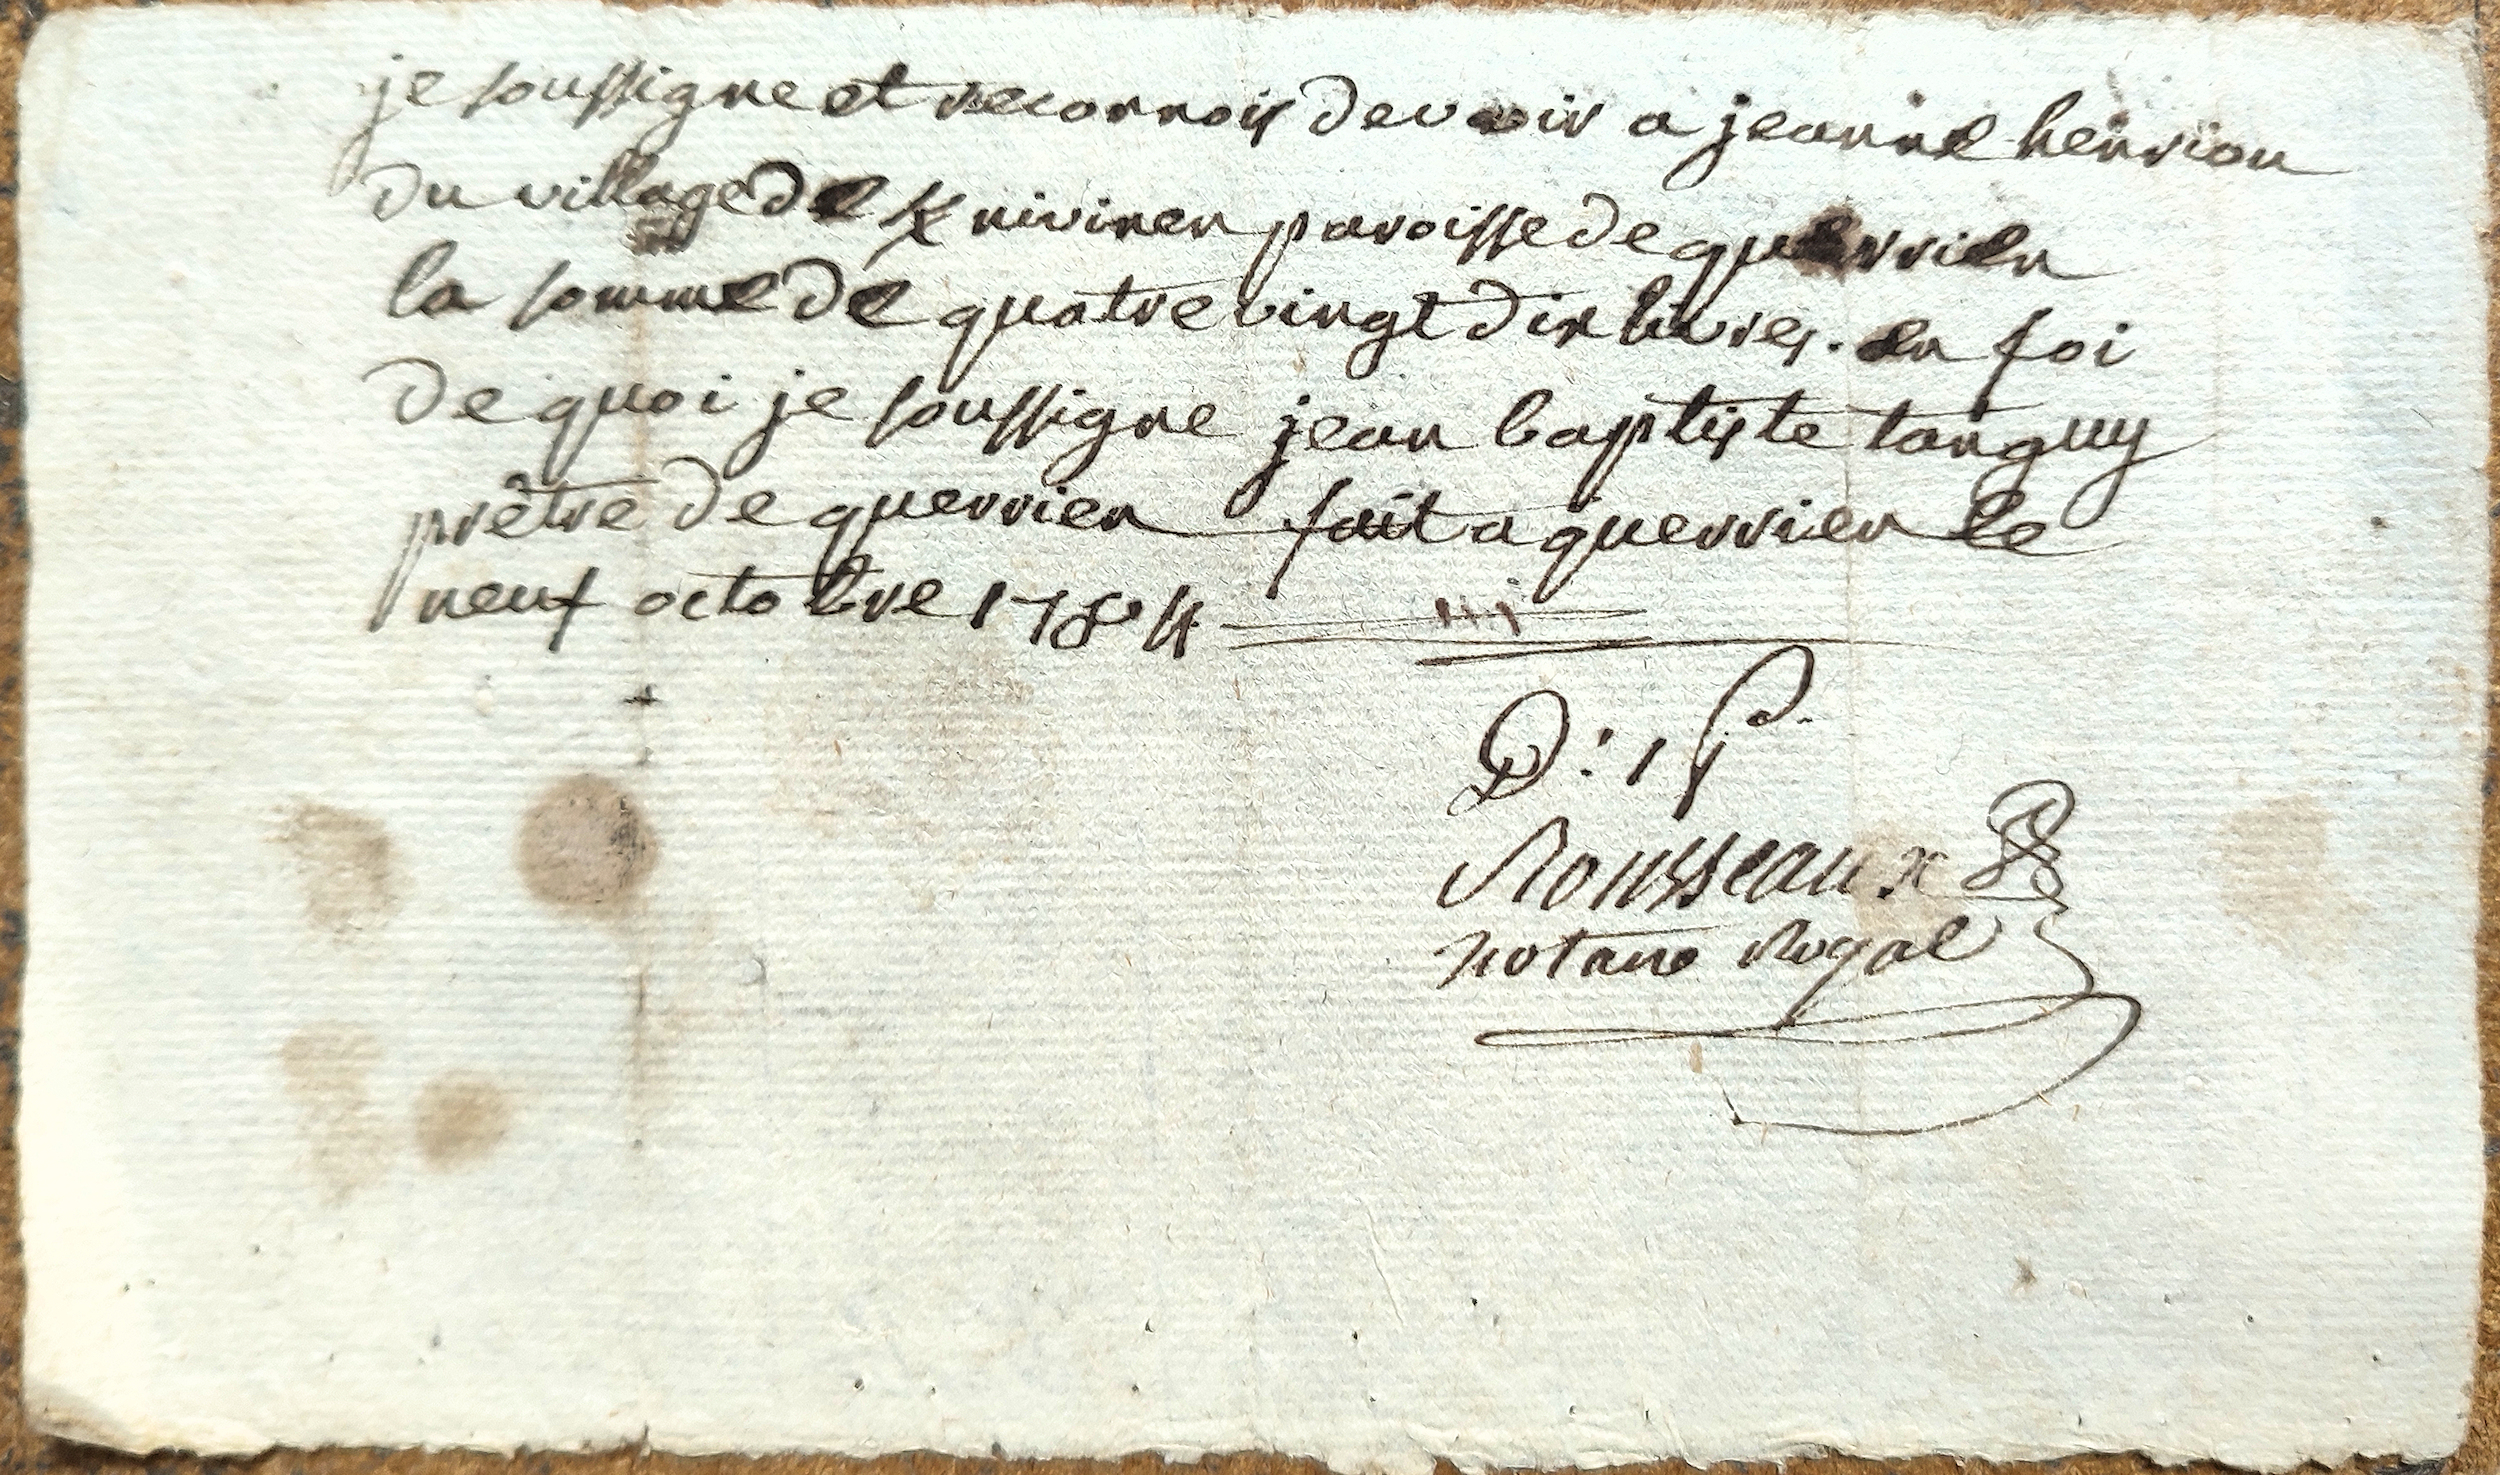 je soussigne et reconnois devoir a jeanne henriou
du village de K niviner paroisse de querrien
la somme de quatre vingt dix livres. en foi
de quoi je soussigne jean baptiste tanguy
prêtre de querrien fait a querrien le
neuf octobre 1784
D: 1 P
Rousseaux
notaire Royal